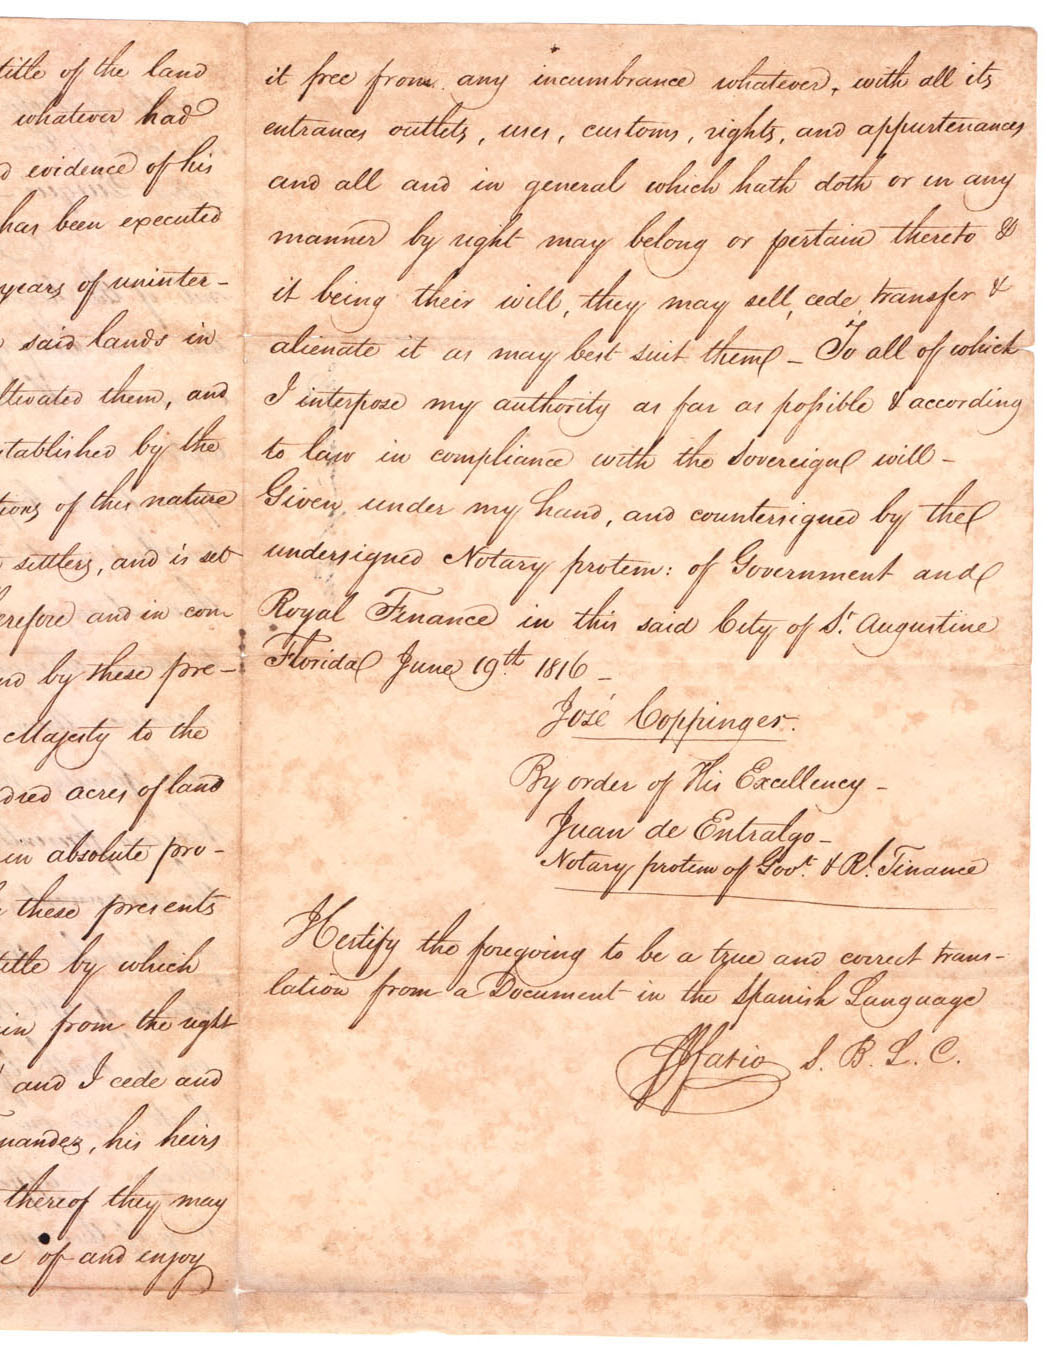 title of the land
whatever had
evidence of his
has been executed
years of uninter-
said lands in
ltivated them, and
stablished by the
tions of this nature
settlers, and is set
erefore and in com
nd by these pre-
Majesty to the
dred acres of land
in absolute pro-
these presents
title by which
in from the right
and I cede and
nandez, his heirs
thereof they may
e of and enjoy
it free from any incumbrance whatever, with all its
entrances outlets, uses, customs, rights, and appurtenances
and all and in general which hath doth or in any
manner by right may belong or pertain thereto &
it being their will, they may sell, cede, transfer &
alienate it as may best suit them - To all of which
I interpose my authority as far as possible & according
to law in compliance with the Sovereign will -
Given under my hand, and countersigned by the
undersigned Notary protem: of Government and
Royal Finance in this said City of St Augustine
Florida June 19th 1816 -
José Coppinger.
By order of His Excellency -
Juan de Entralgo -
Notary protem of Govt. & Rl. Finance
I Certify the foregoing to be a true and correct trans-
lation from a Document in the Spanish Language
S. B. L. C.